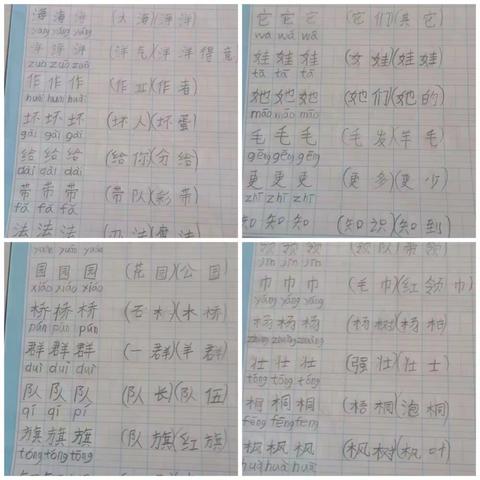 海 海 海 (大海)(海洋)
yáng yáng yáng
洋 洋 洋 (洋气)(洋洋得意
zuò zuò zuò
作 作 作 (作业)(作者)
huài huài huài
坏 坏 坏 (坏人)(坏蛋)
gěi gěi gěi
给 给 给 (给你)(分给)
dài dài dài
带 带 带 (带队)(彩带)
fǎ fǎ fǎ
法 法 法
它 它 它 (它们)(其它)
wá wá wá
娃 娃 娃 (女娃)(娃娃)
tā tā tā
她 她 她 (她们)(她的)
máo máo máo
毛 毛 毛 (毛发)(羊毛)
gèng gèng gèng
更 更 更 (更多)(更少)
zhī zhī zhī
知 知 知 (知识)(知到)
yuán yuán yuán
园 园 园 (花园)(公园)
xiáo xiáo xiáo
桥 桥 桥 (木桥)
pún pún pún
群 群 群 (一群)(羊群)
duì duì duì
队 队 队 (队长)(队伍)
qí qí pí
旗 旗 旗 (队旗)(红旗)
tóng tóng tóng
领 领 领 (领队)(带领)
jīn jīn jīn
巾 巾 巾 (毛巾)(红领巾)
yáng yáng yáng
杨 杨 杨 (杨树)(杨柳)
壮 壮 壮 (强壮)(壮士)
tóng tóng tóng
桐 桐 桐 (梧桐)(泡桐)
fēng fēng
枫 枫 枫 (枫树)(枫叶)
huà huà huà